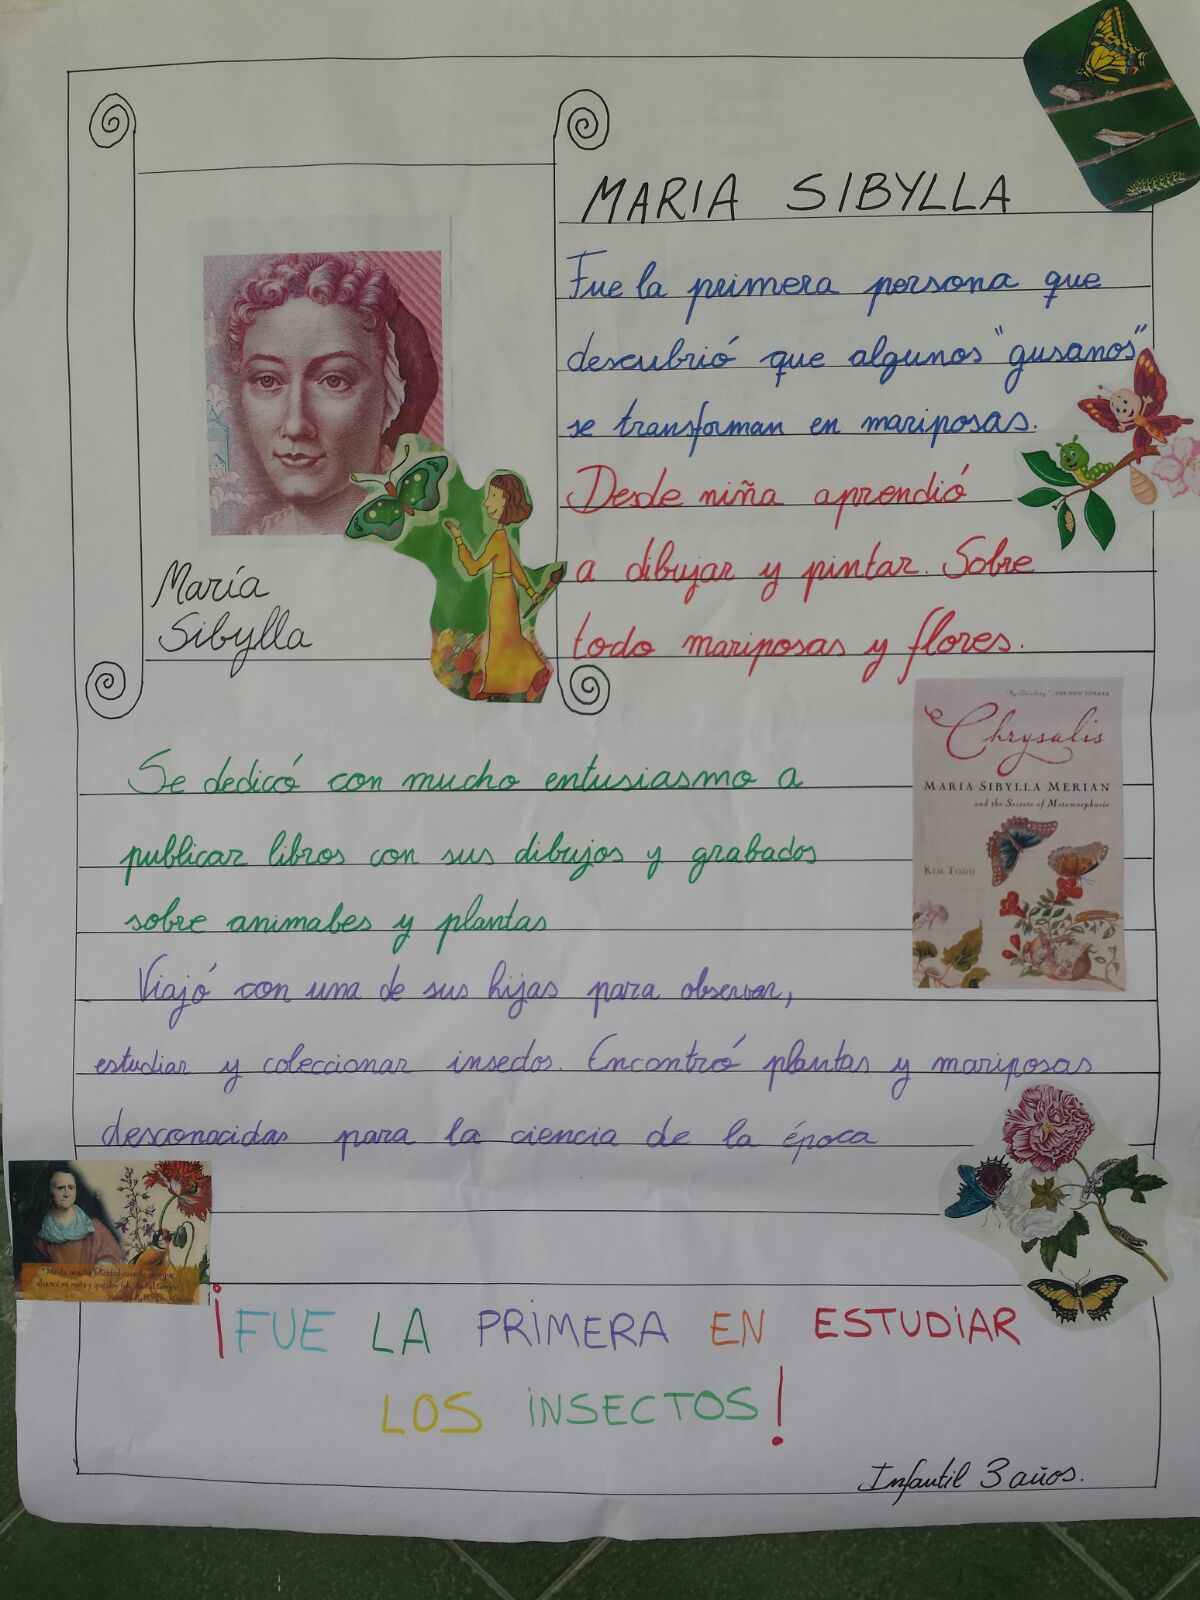 MARIA SIBYLLA
Fue la primera persona que
descubrió que algunos "gusanos"
se transforman en mariposas.
Desde niña aprendió
a dibujar y pintar. Sobre
todo mariposas y flores.
María
Sibylla
"Spellbinding." —THE NEW YORKER
Chrysalis
MARIA SIBYLLA MERIAN
and the Secrets of Metamorphosis
KIM TODD
Se dedicó con mucho entusiasmo a
publicar libros con sus dibujos y grabados
sobre animales y plantas
Viajó con una de sus hijas para observar,
estudiar y coleccionar insectos. Encontró plantas y mariposas
desconocidas para la ciencia de la época
"Me da mucha felicidad
alcancé mi meta y
¡FUE LA PRIMERA EN ESTUDIAR
LOS INSECTOS!
Infantil 3 años.